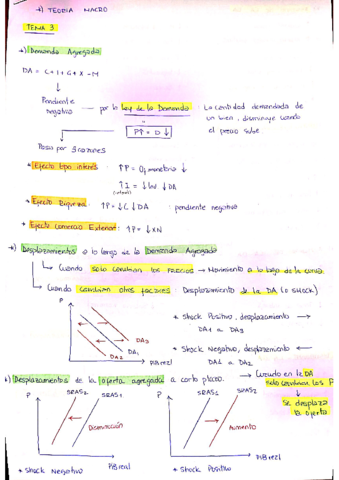 →) TEORIA MACRO
TEMA 3
→) Demanda Agregada
DA = C + I + G + X - M
Pendiente negativa → por la Ley de la Demanda : La cantidad demandada de
un bien, disminuye cuando
el precio sube
↑P = D ↓
Pasa por 3 razones
* Efecto tipo interés : ↑P = Oj monetaria ↓
↑i = ↓ Inv ↓ DA
* Efecto Riqueza : ↑P = ↓C ↓DA : pendiente negativa
* Efecto Comercio Exterior : ↑P = ↓ XN
→) Desplazamientos a lo largo de la Demanda Agregada
Cuando solo cambian los PRECIOS → Movimiento a lo largo de la curva.
Cuando cambian otros factores : Desplazamiento de la DA (o SHOCK)
P
DA3
DA1
DA2
PIB real
* Shock Positivo, desplazamiento →
DA1 a DA3
* Shock Negativo, desplazamiento ←
DA1 a DA2
→) Desplazamientos de la oferta agregada a corto plazo. → Cuando en la DA
solo cambian los P
Se desplaza
la oferta
P
SRAS2
SRAS1
Disminución
PIB real
* Shock Negativo
P
SRAS1
SRAS2
Aumento
PIB real
* Shock Positivo